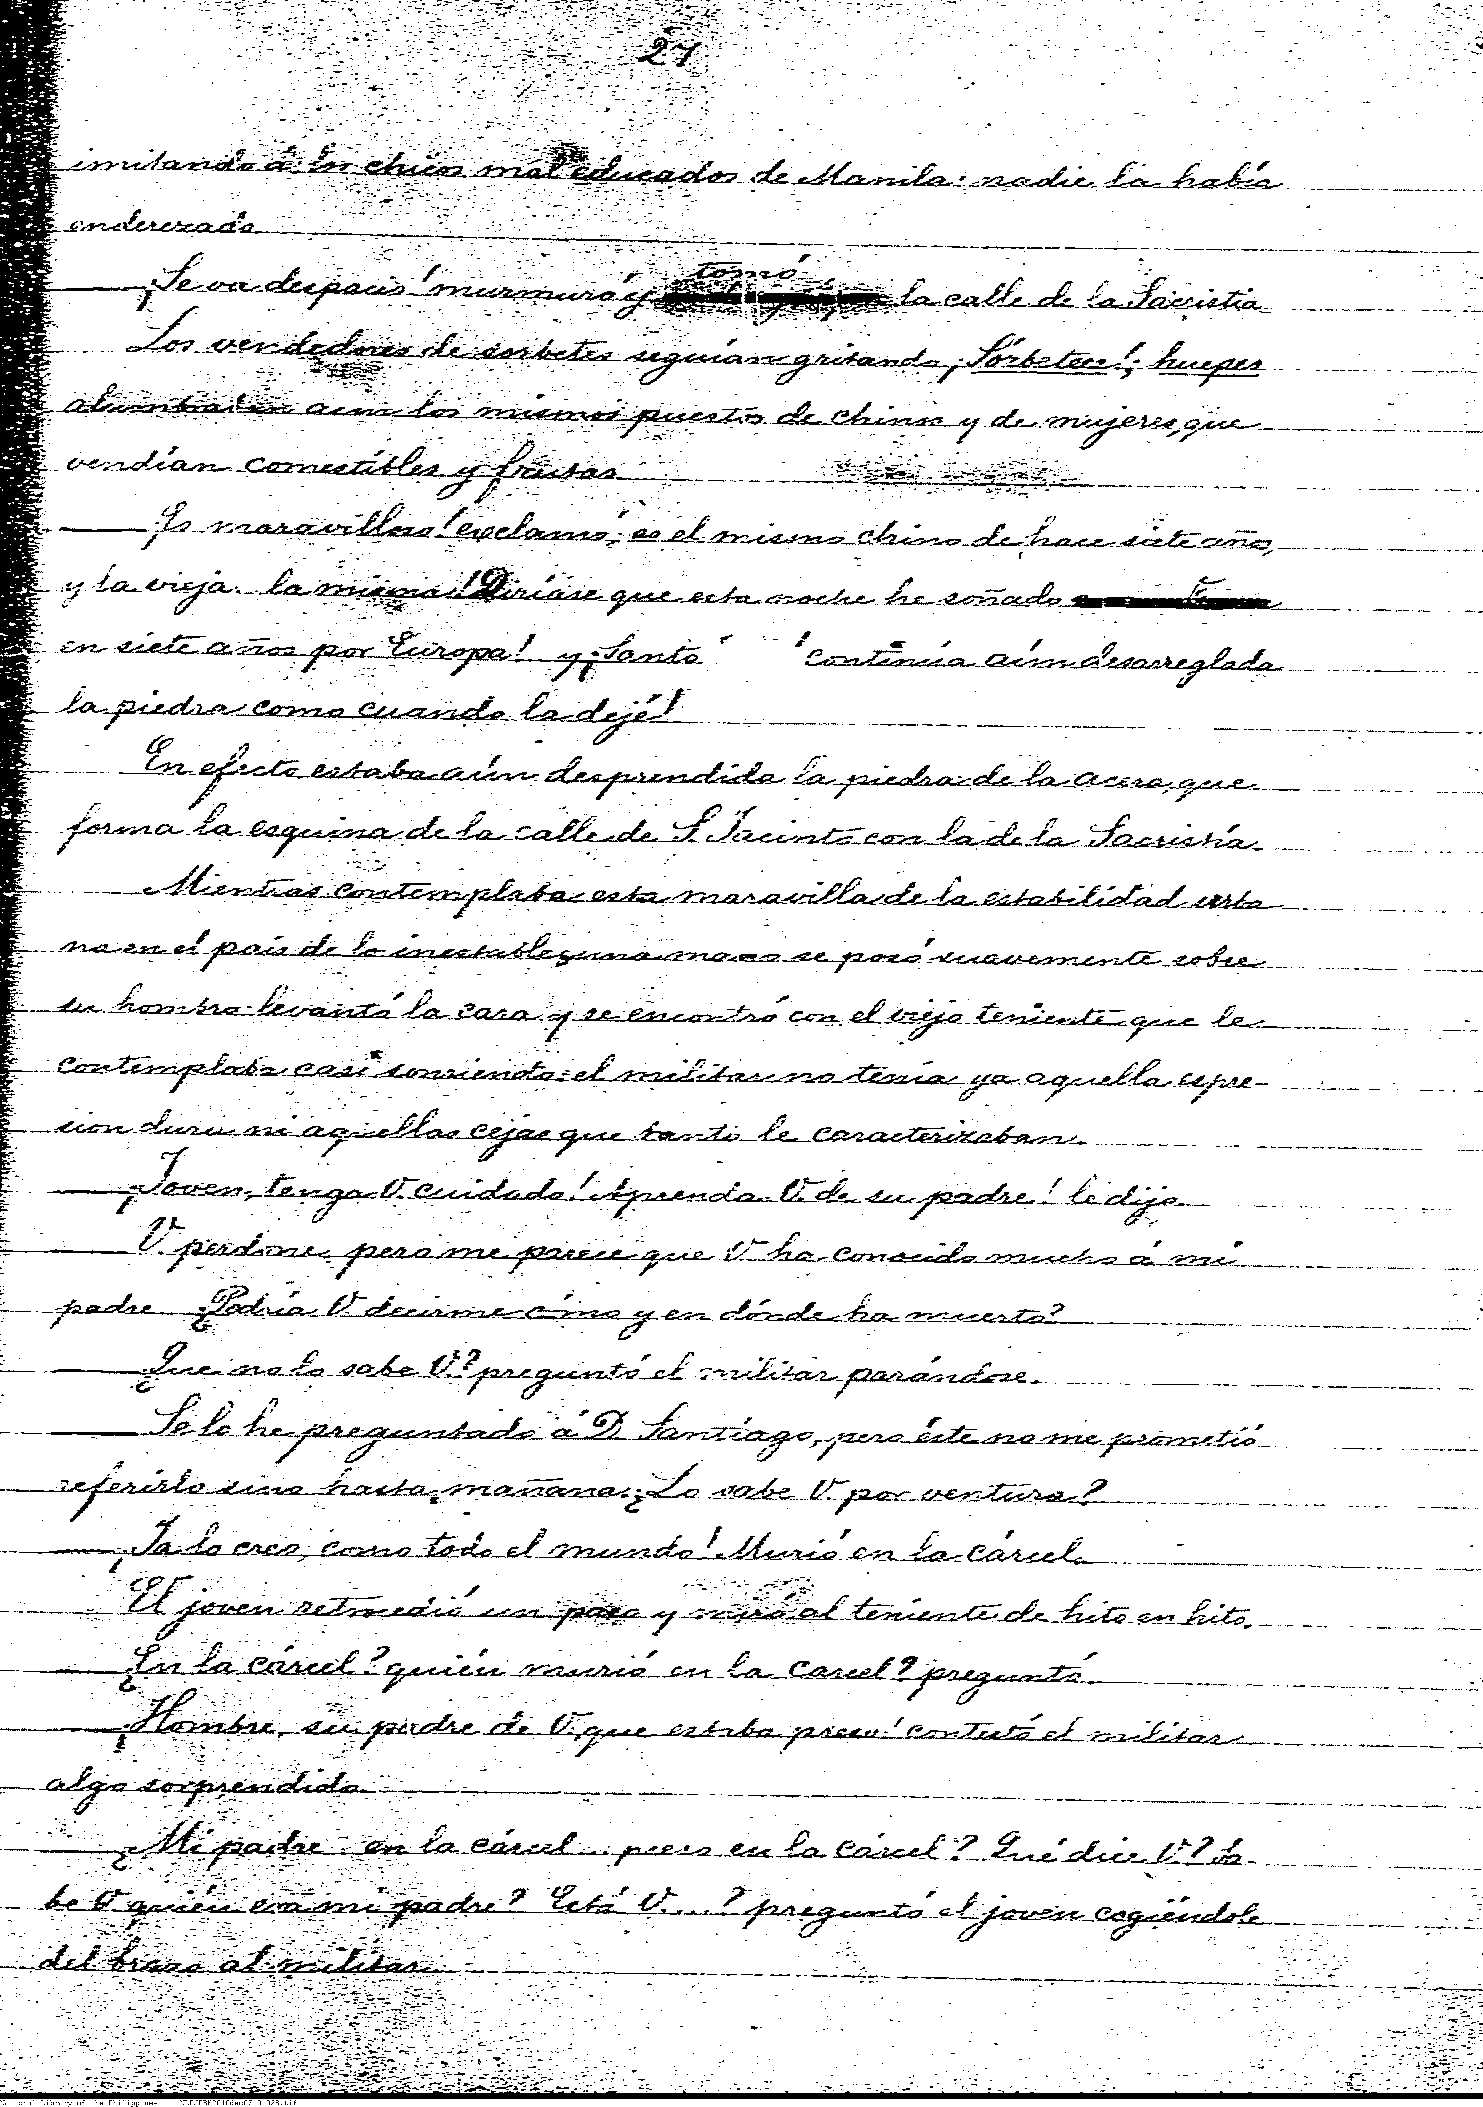 27
imitando á los chicos mal educados de Manila: nadie la había
enderezado.
—¡Se va despacio! murmuró y tomó la calle de la Sacristia
Los vendedores de sorbetes seguían gritando ¡Sórbetee!; huepes
alumbraban aun los mismos puestos de chinos y de mujeres, que
vendían comestibles y frutas.
—¡Es maravilloso! exclamó; es el mismo chino de hace siete años,
y la vieja.. la misma! Diríase que esta noche he soñado
en siete años por Europa! y ¡Santo ! continúa aún desarreglada
la piedra como cuando la dejé!
En efecto estaba aún desprendida la piedra de la acera, que
forma la esquina de la calle de S. Jacinto con la de la Sacristía.
Mientras contemplaba esta maravilla de la estabilidad urba
na en el país de lo inestable, una mano se posó suavemente sobre
su hombro: levantó la cara y se encontró con el viejo teniente que le
contemplaba casi sonriendo: el militar no tenía ya aquella espre-
sion dura ni aquellas cejas que tanto le caracterizaban.
—¡Joven, tenga V. cuidado! Aprenda V. de su padre! le dijo.
—V. perdone, pero me parece que V ha conocido mucho á mi
padre ¿Podría V decirme cómo y en dónde ha muerto?
—¿Que no lo sabe V.? preguntó el militar parándose.
—Se lo he preguntado á D Santiago, pero éste no me prometió
referirlo sino hasta mañana. ¿Lo sabe V. por ventura?
—¡Ya lo creo, como todo el mundo! Murió en la cárcel.
El joven retrocedió un paso y miró al teniente de hito en hito.
—¿En la cárcel? quién murió en la carcel? preguntó.
—¡Hombre, su padre de V, que estaba preso! contestó el militar
algo sorprendido.
—¿Mi padre.. en la cárcel... preso en la cárcel? Qué dice V.? Sa
be V quién era mi padre? Está V....? preguntó el joven cogiéndole
del brazo al militar.